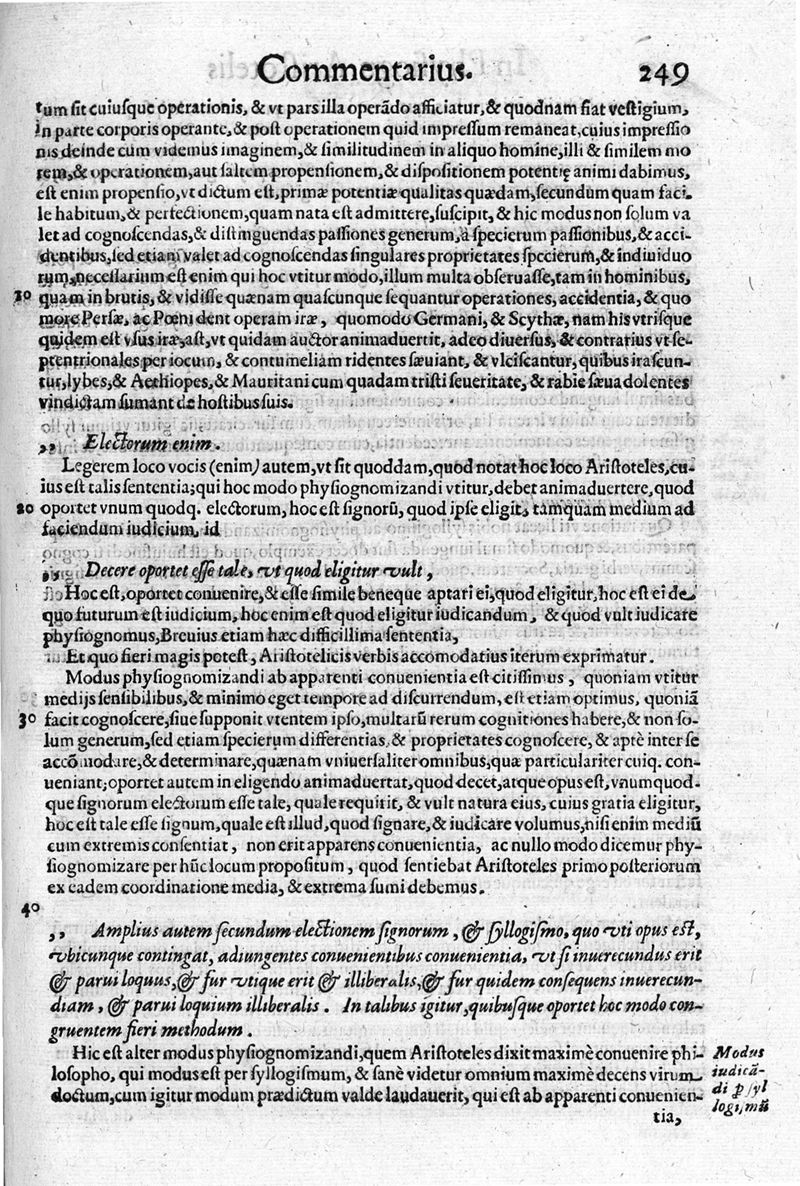 Commentarius. 249
tum sit cuiusque operationis, & vt pars illa operādo afficiatur, & quodnam fiat vestigium,
in parte corporis operante, & post operationem quid impressum remaneat, cuius impressio
nis deinde cum videmus imaginem, & similitudinem in aliquo homine, illi & similem mo
rem, & operationem, aut saltem propensionem, & dispositionem potentię animi dabimus,
est enim propensio, vt dictum est, primæ potentiæ qualitas quædam, secundum quam faci.
le habitum, & perfectionem, quam nata est admittere, suscipit, & hic modus non solum va
let ad cognoscendas, & distinguendas passiones generum, à specierum passionibus, & acci-
dentibus, sed etiam valet ad cognoscendas singulares proprietates specierum, & indiuiduo
rum, necessarium est enim qui hoc vtitur modo, illum multa obseruasse, tam in hominibus,
10 quam in brutis, & vidisse quænam quascunque sequantur operationes, accidentia, & quo
more Persæ, ac Pœni dent operam iræ, quomodo Germani, & Scythæ, nam his vtrisque
quidem est vsus iræ, ast, vt quidam auctor animaduertit, adeo diuersus, & contrarius vt se-
ptentrionales per iocum, & contumeliam ridentes sæuiant, & vlciscantur, quibus irascun-
tur, lybes, & Aethiopes, & Mauritani cum quadam tristi seueritate, & rabie sæua dolentes
vindictam sumant de hostibus suis.
,, Electorum enim.
Legerem loco vocis (enim) autem, vt sit quoddam, quod notat hoc loco Aristoteles, cu-
ius est talis sententia; qui hoc modo physiognomizandi vtitur, debet animaduertere, quod
20 oportet vnum quodq. electorum, hoc est signorū, quod ipse eligit, tamquam medium ad
faciendum iudicium, id
,, Decere oportet esse tale, vt quod eligitur vult,
Hoc est, oportet conuenire, & esse simile beneque aptari ei, quod eligitur, hoc est ei de
quo futurum est iudicium, hoc enim est quod eligitur iudicandum, & quod vult iudicare
physiognomus, Breuius etiam hæc difficillima sententia,
Et quo fieri magis potest, Aristotelicis verbis accomodatius iterum exprimatur.
Modus physiognomizandi ab apparenti conuenientia est citissimus, quoniam vtitur
medijs sensibilibus, & minimo eget tempore ad discurrendum, est etiam optimus, quoniā
30 facit cognoscere, siue supponit vtentem ipso, multarū rerum cognitiones habere, & non so-
lum generum, sed etiam specierum differentias, & proprietates cognoscere, & aptè inter se
accōmodare, & determinare, quænam vniuersaliter omnibus, quæ particulariter cuiq. con-
ueniant; oportet autem in eligendo animaduertat, quod decet, atque opus est, vnumquod-
que signorum electorum esse tale, quale requirit, & vult natura eius, cuius gratia eligitur,
hoc est tale esse signum, quale est illud, quod signare, & iudicare volumus, nisi enim mediū
cum extremis consentiat, non erit apparens conuenientia, ac nullo modo dicemur phy-
siognomizare per hūc locum propositum, quod sentiebat Aristoteles primo posteriorum
ex eadem coordinatione media, & extrema sumi debemus.
40
,, Amplius autem secundum electionem signorum, & syllogismo, quo vti opus est,
vbicunque contingat, adiungentes conuenientibus conuenientia, vt si inuerecundus erit
& parui loquus, & fur vtique erit & illiberalis, & fur quidem consequens inuerecun-
diam, & parui loquium illiberalis. In talibus igitur, quibusque oportet hoc modo con-
gruentem fieri methodum.
Hic est alter modus physiognomizandi, quem Aristoteles dixit maximè conuenire phi-
losopho, qui modus est per syllogismum, & sanè videtur omnium maximè decens virum
doctum, cum igitur modum prædictum valde laudauerit, qui est ab apparenti conuenien-
tia,
Modus
iudicā-
di ꝑ syl
logismū